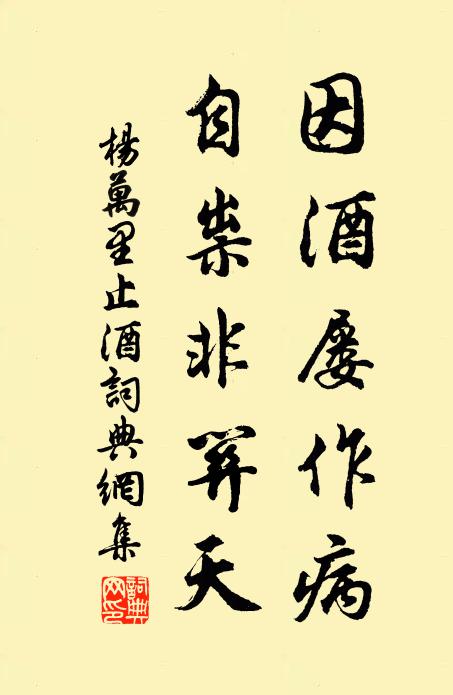 因酒屢作病
自祟非關天
楊萬里止酒詞典網集
詞典
网印